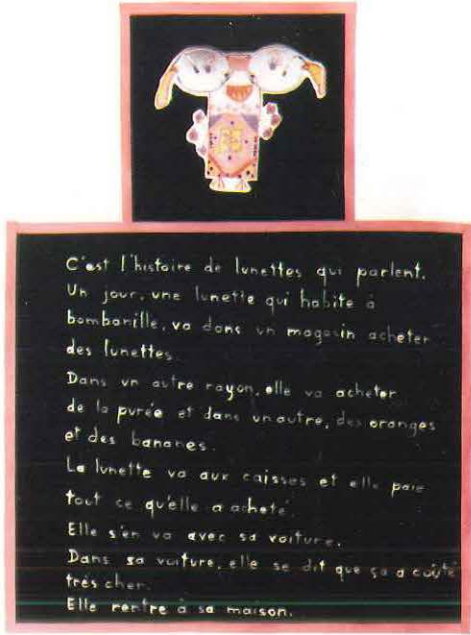 C'est l'histoire de lunettes qui parlent.
Un jour, une lunette qui habite à
bombanille, va dans un magasin acheter
des lunettes.
Dans un autre rayon, elle va acheter
de la purée et dans un autre, des oranges
et des bananes.
La lunette va aux caisses et elle paie
tout ce qu'elle a acheté.
Elle s'en va avec sa voiture.
Dans sa voiture, elle se dit que ça a coûté
très cher.
Elle rentre à sa maison.